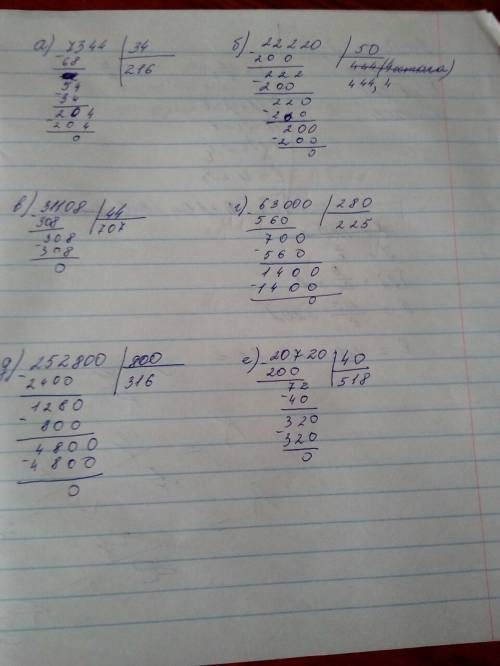 а) 7344 | 34
68 | 216
54
34
204
204
0
б) 22220 | 50
200 | 444 (4 остача)
222 444,4
200
220
200
200
200
0
в) 31108 | 44
308 | 707
308
308
0
г) 63000 | 280
560 | 225
700
560
1400
1400
0
д) 252800 | 800
2400 | 316
1280
800
4800
4800
0
е) 20720 | 40
200 | 518
72
40
320
320
0